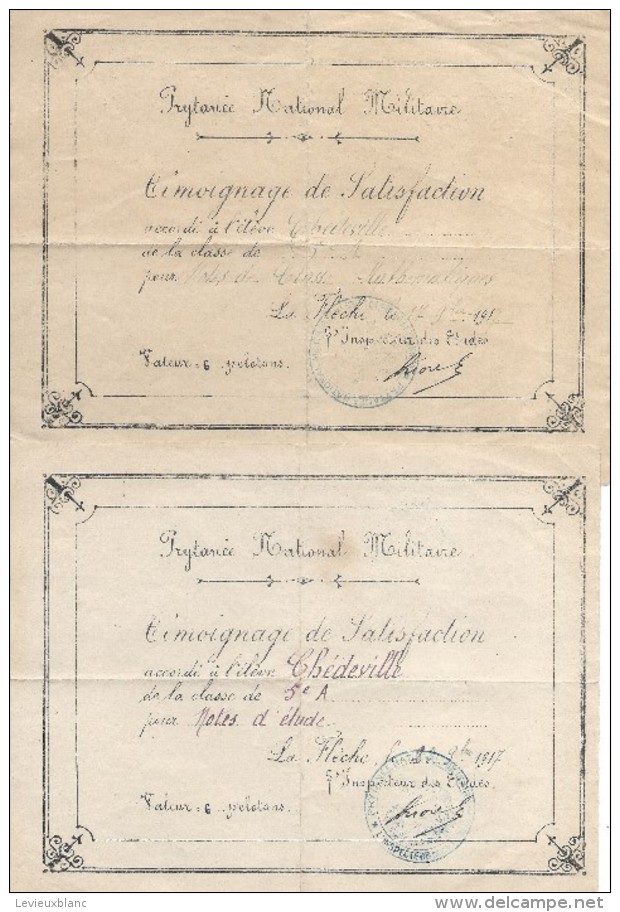 Prytanée National Militaire
Témoignage de Satisfaction
accordé à l'élève Chédeville
de la classe de
pour Notes de Classe Mathématiques
La Flèche le 17 1917
Pr Inspecteur des Etudes
Valeur = 6 pelotons.
Prytanée National Militaire
Témoignage de Satisfaction
accordé à l'élève Chédeville
de la classe de 5e A
pour Notes d'étude
La Flèche le 9bre 1917
Pr Inspecteur des Etudes
Valeur = 6 pelotons.
Levieuxblanc
www.delcampe.net